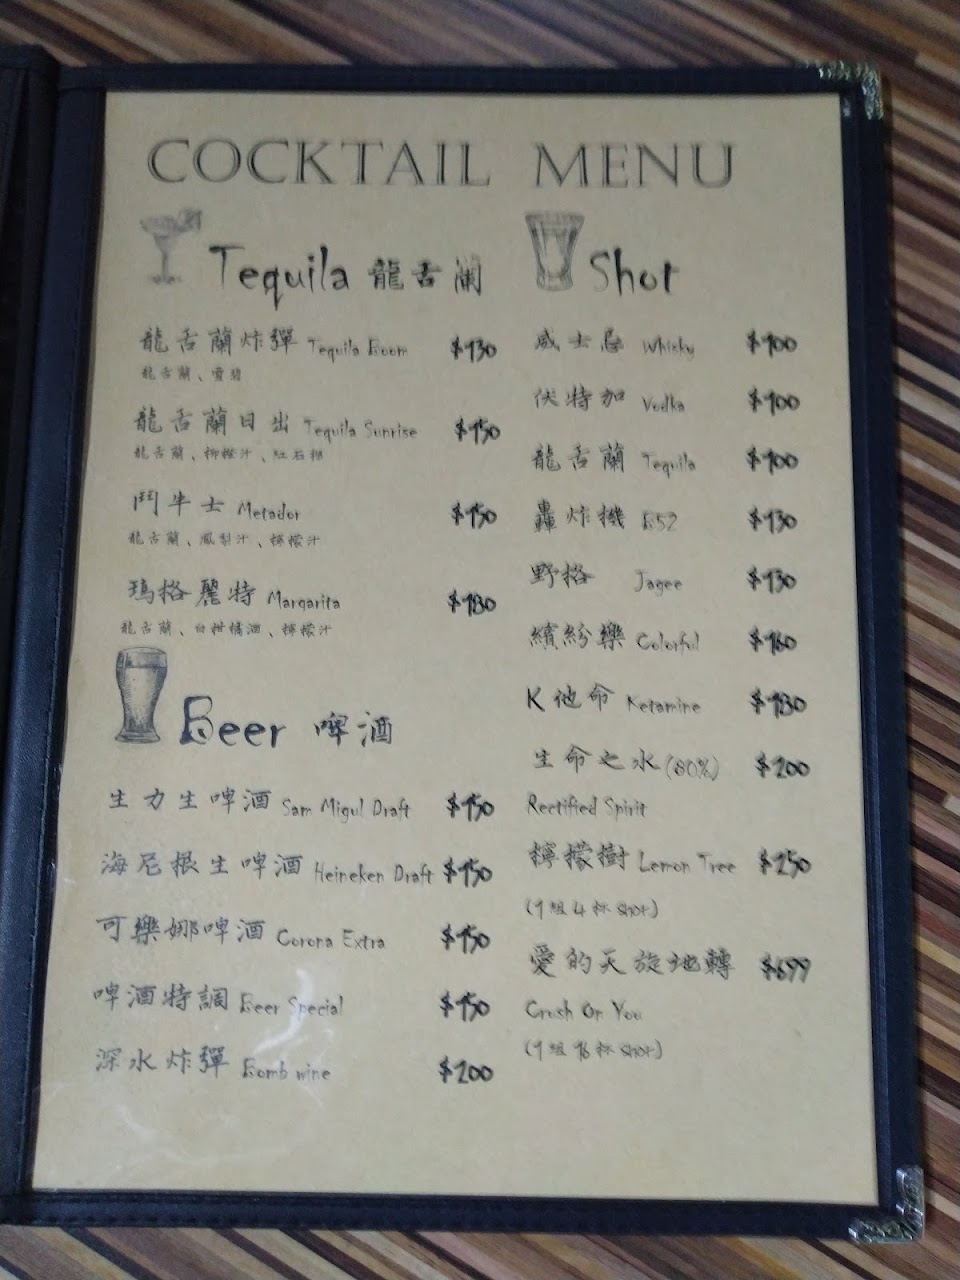 COCKTAIL MENU
Tequila 龍舌蘭
龍舌蘭炸彈 Tequila Boom $130
龍舌蘭、雪碧
龍舌蘭日出 Tequila Sunrise $150
龍舌蘭、柳橙汁、紅石榴
鬥牛士 Metador $150
龍舌蘭、鳳梨汁、檸檬汁
瑪格麗特 Margarita $180
龍舌蘭、白柑橘酒、檸檬汁
Beer 啤酒
生力生啤酒 Sam Migul Draft $150
海尼根生啤酒 Heineken Draft $150
可樂娜啤酒 Corona Extra $150
啤酒特調 Beer Special $150
深水炸彈 Bomb wine $200
Shot
威士忌 Whisky $100
伏特加 Vodka $100
龍舌蘭 Tequila $100
轟炸機 B52 $130
野格 Jagee $130
繽紛樂 Colorful $160
K他命 Ketamine $180
生命之水(80%) $200
Rectified Spirit
檸檬樹 Lemon Tree $250
(1組4杯shot)
愛的天旋地轉 $699
Crush On You
(1組16杯shot)